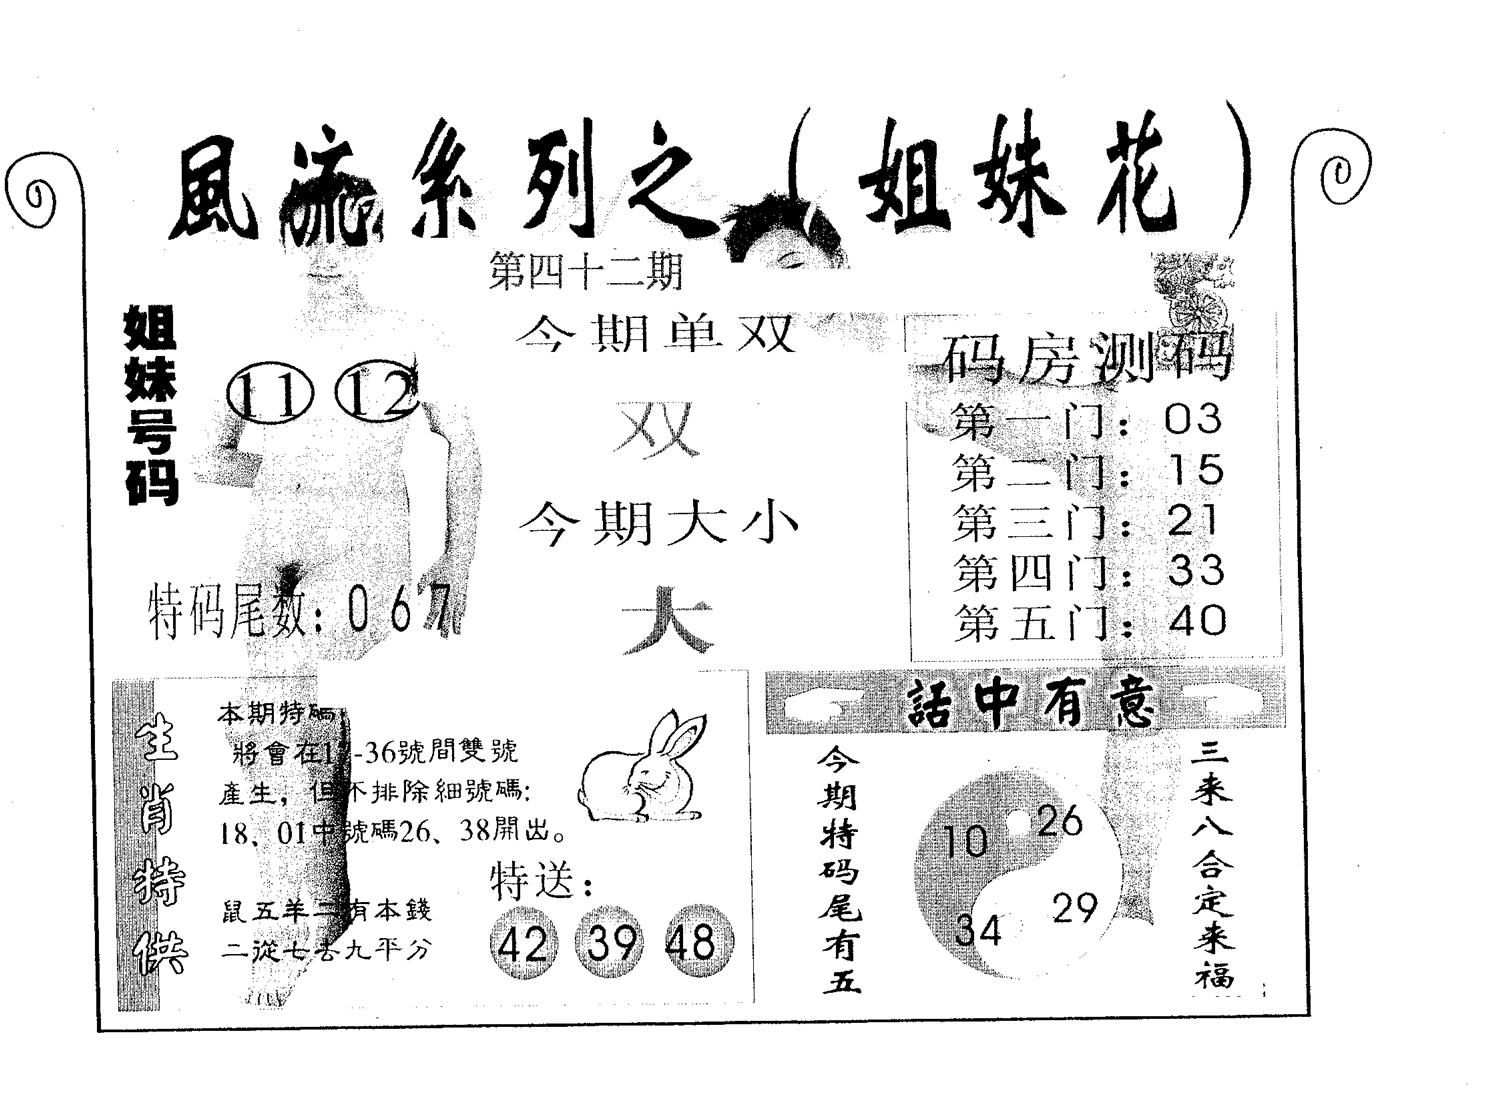 風流系列之（姐妹花）
第四十二期
姐妹号码
11 12
特码尾数：0 6 7
今期单双
双
今期大小
大
码房测码
第一门：03
第二门：15
第三门：21
第四门：33
第五门：40
生肖特供
本期特碼
將會在17-36號間雙號
產生，但不排除細號碼：
18、01中號碼26、38開出。
鼠五羊二有本錢
二從七去九平分
特送：
42 39 48
話中有意
今期特码尾有五
10 26
34 29
三来八合定来福